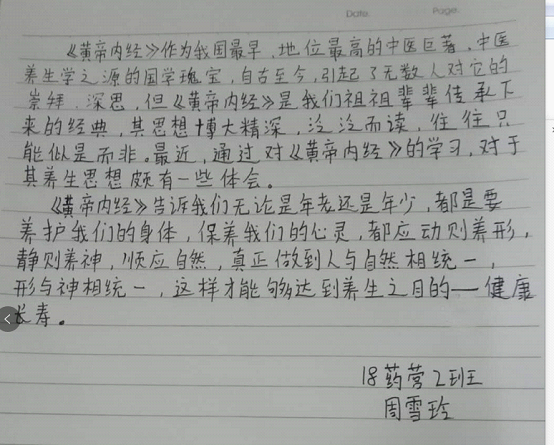 Date. Page.
《黄帝内经》作为我国最早、地位最高的中医巨著,中医
养生学之源的国学瑰宝,自古至今,引起了无数人对它的
崇拜、深思,但《黄帝内经》是我们祖祖辈辈传承下
来的经典,其思想博大精深,泛泛而读,往往只
能似是而非。最近,通过对《黄帝内经》的学习,对于
其养生思想颇有一些体会。
《黄帝内经》告诉我们无论是年老还是年少,都是要
养护我们的身体,保养我们的心灵,都应动则养形,
静则养神,顺应自然,真正做到人与自然相统一,
形与神相统一,这样才能够达到养生之目的——健康
长寿。
18药营2班
周雪玲